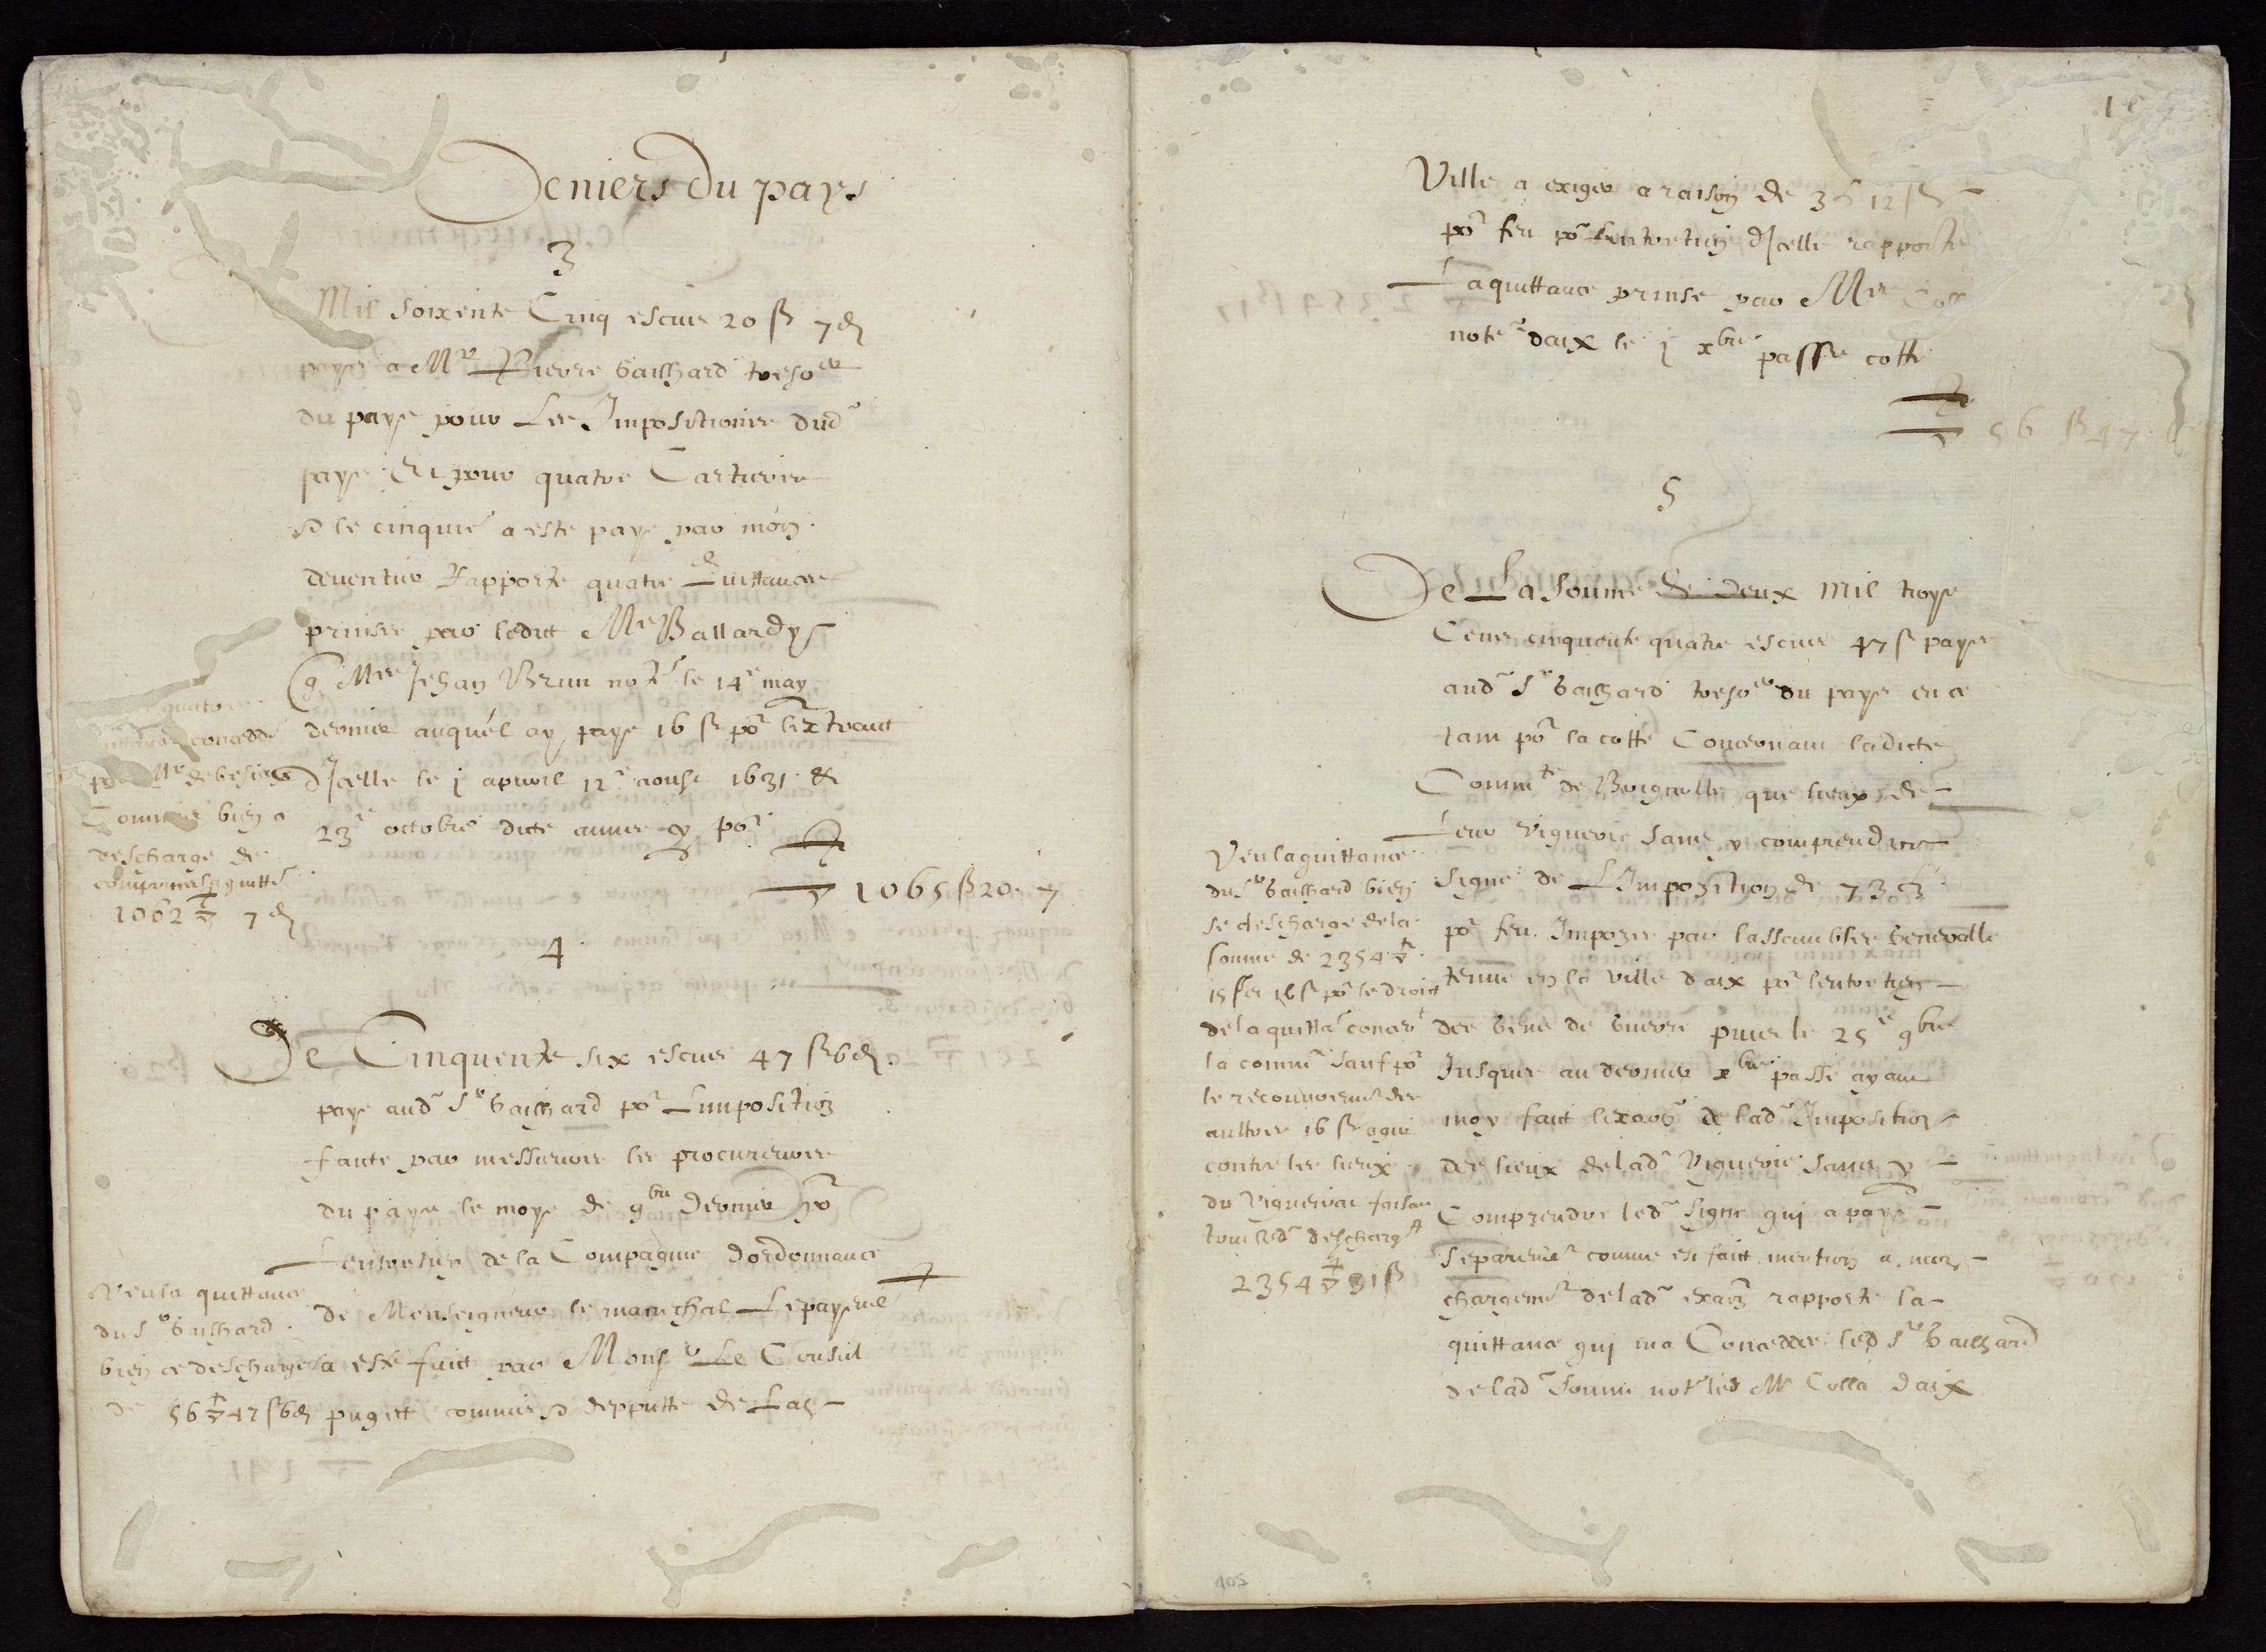 Deniers du pays
3
Mil soixente Cinq escus 20 ß 7 d
payes a Mr Pierre Gailhard treso er
du pays pour Les Impositions dud
pays Et pour quatre Cartiers
le cinquie a este paye par mon
deventier Rapporte quatre Quittances
prinses par ledict Me Ballardy
Mre Jehan Brun note le 14e may
dernier auquel ay paye 16 ß por lextraict
dIcelle le j apvril 12e aoust 1631 &
23e octobre dicte annee cy por
1065 ß 20 7
quatre
quittances concedde
par Me de besieux
Commis bien a
descharge de
1062 7 d
4
De Cinquente six escus 47 ß 6 d
paye aud Sr Gailhard por Limposition
faicte par messieurs les procureurs
du pays le moys de 9bre Dernier por
Lentretien de la Compagnie dordonnance
de Monseigneur le marechal Le payeme
a este faict par Monsr Le Consul
puget commis depputte de Las
Veu la quittance
du Sr Gailhard
bien ce descharge
de 56 47 ß 6 d
Ville a exiger a raison de 3 12 ß
por feu por Lentretien dIcelle rapporte
La quittance prinse par Mre Coll
note daix le j xbre passe cotte
56 ß 47
5
De La Somme de deux mil troys
Cens cinquente quatre escus 47 ß payes
aud Sr Gailhard treso er du pays en ce
tant por la cotte Concernant ladicte
Commte de Brignolle que lieux de
Leur Viguerie sans y comprendre
Signe de LImpozition de 73
por feu Impozee par lassamblee Generalle
tenue en la ville daix por lentretien
des Gens de Guerre puis le 25e 9bre
Jusques au dernier xbre passe ayant
moy faict lexaon de lad Imposition
des lieux de lad Viguerie sans y
Comprendre led Signe qui a paye
Separeme comme est faict mention a mon
chargeme de lad exaon rapporte la
quittance qui ma Concedde led Sr Gailhard
de lad Somme note led Me Colla daix
Veu la quittance
du Sr Gailhard bien
se descharge de la
somme de 2354
15 ß et 16 ß por le droict
de la quitta concert
la commte sauf por
le recouvreme des
aultres 16 ß
contre les lieux
du Vigueriat faisant
tout descharge
2354 31 ß
105